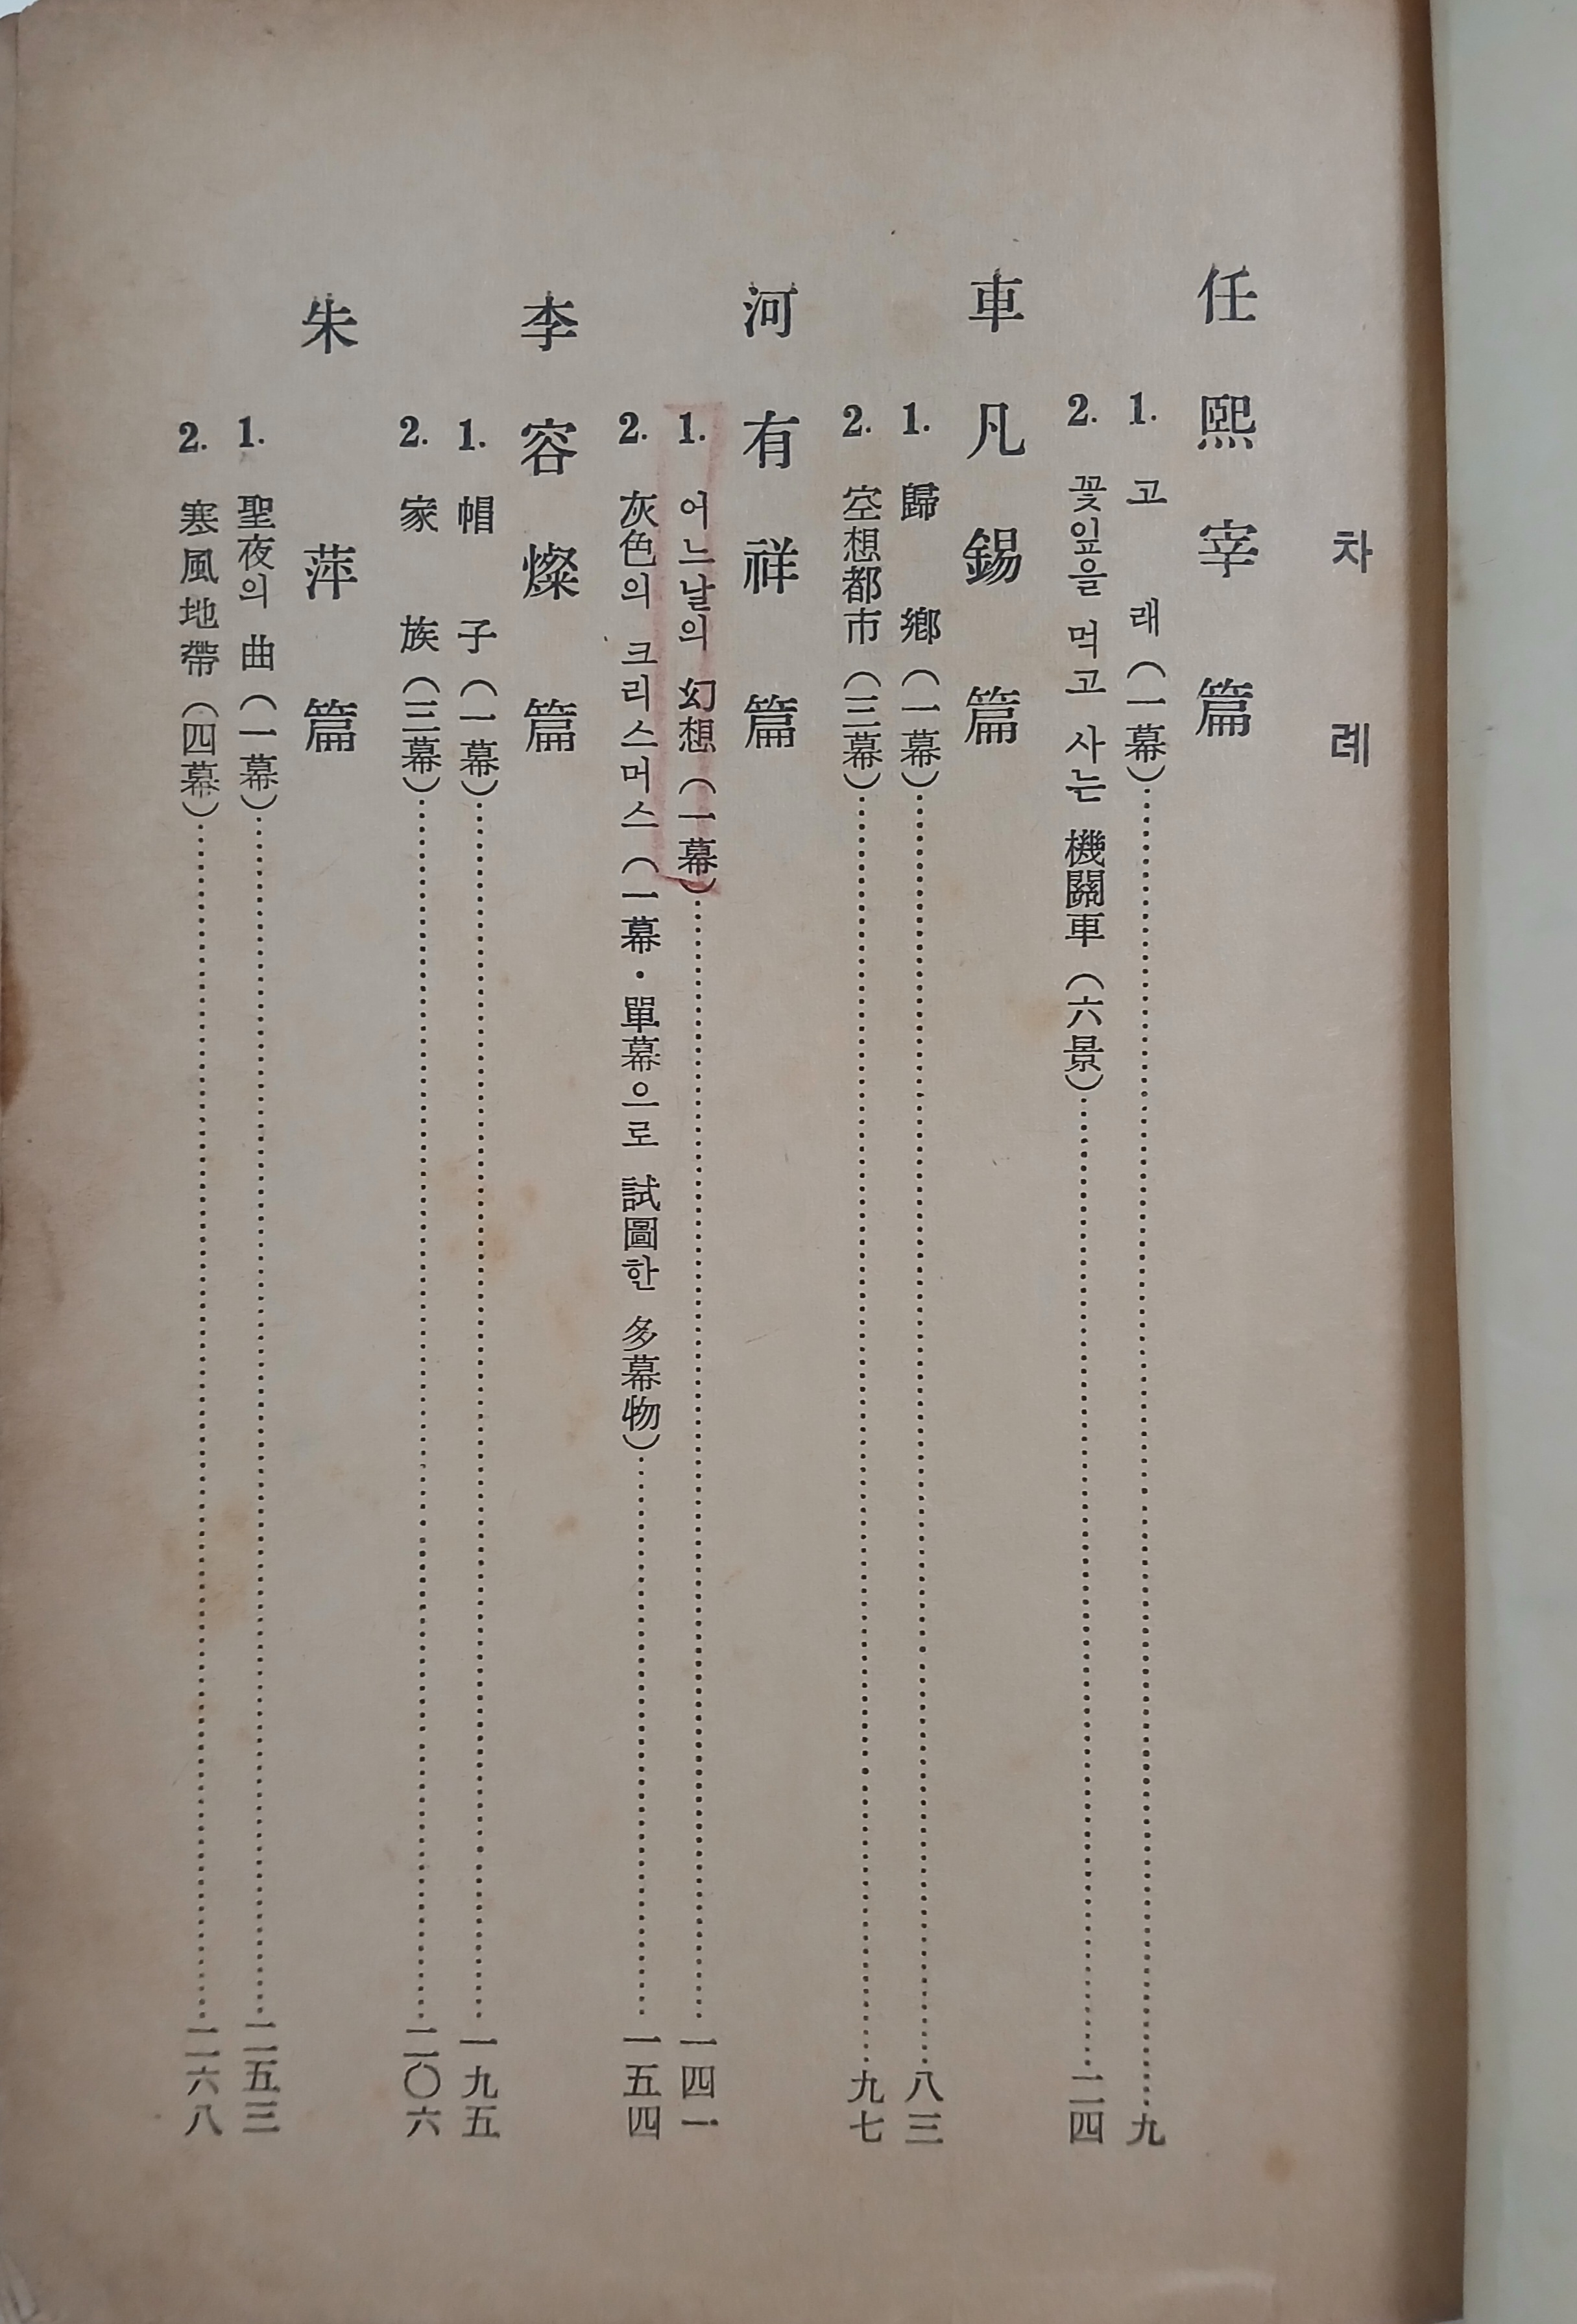 차례
任熙宰篇
1. 고래(一幕)……九
2. 꽃잎을 먹고 사는 機關車(六景)……二四
車凡錫篇
1. 歸鄕(一幕)……八三
2. 空想都市(三幕)……九七
河有祥篇
1. 어느날의 幻想(一幕)……一四一
2. 灰色의 크리스머스(一幕・單幕으로 試圖한 多幕物)……一五四
李容燦篇
1. 帽子(一幕)……一九五
2. 家族(三幕)……二〇六
朱萍篇
1. 聖夜의 曲(一幕)……二五三
2. 寒風地帶(四幕)……二六八